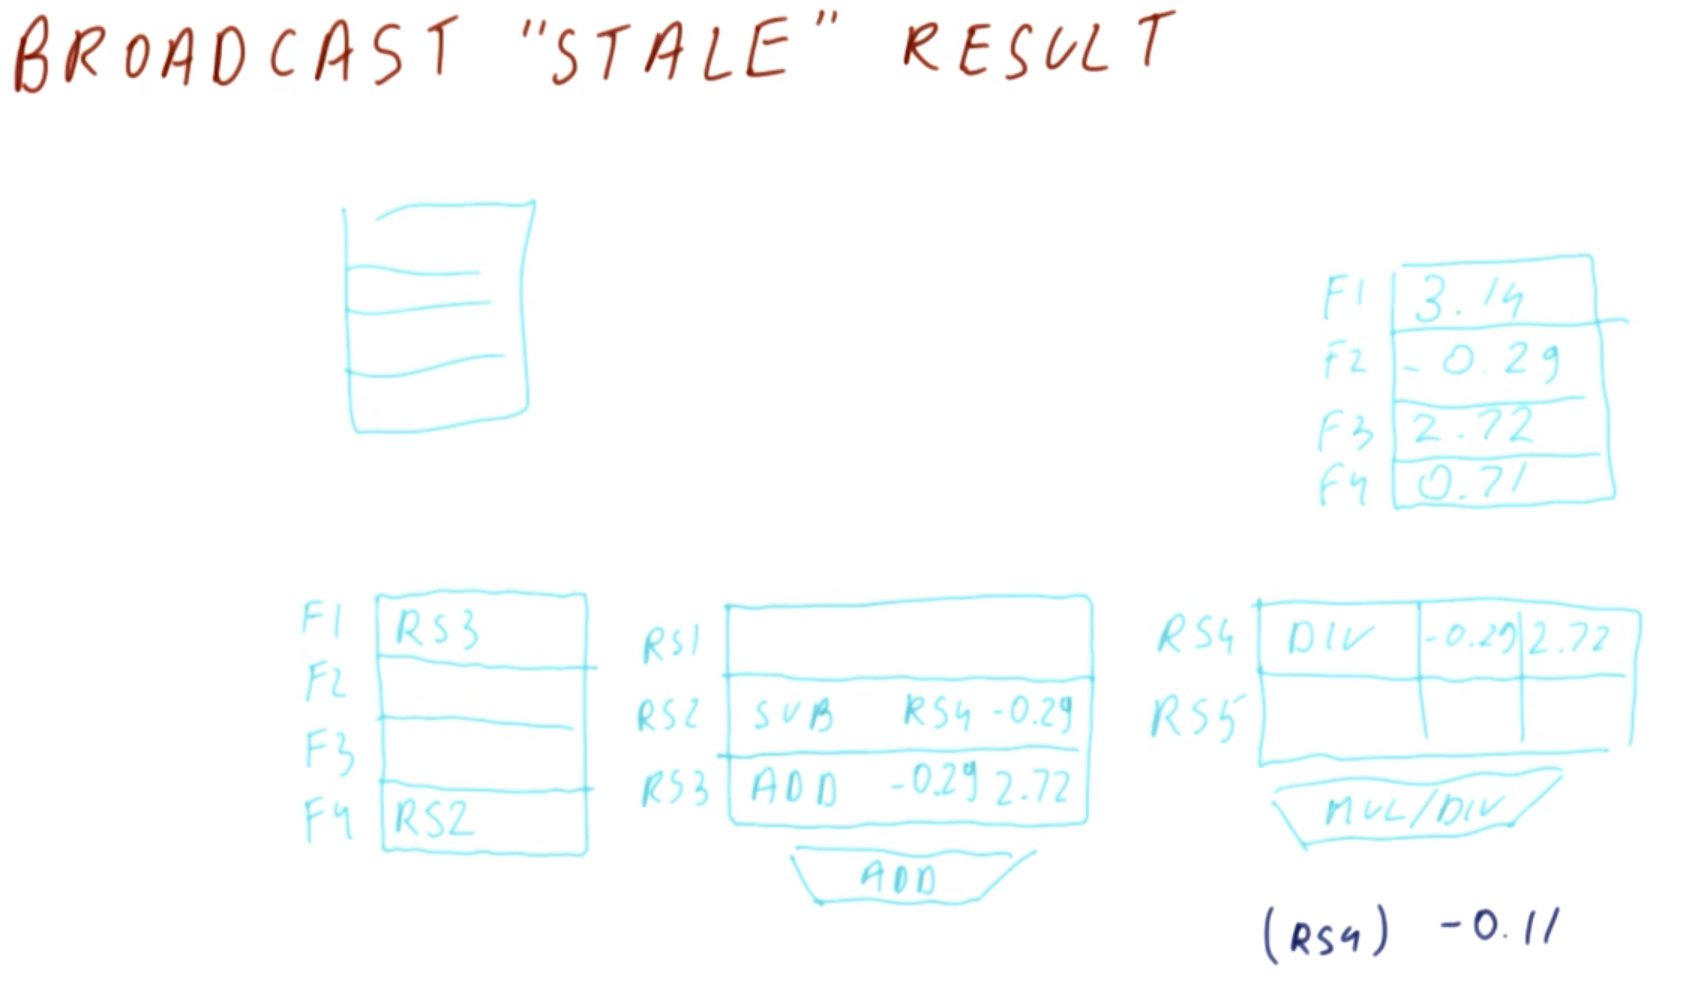 BROADCAST "STALE" RESULT
F1 3.14
F2 -0.29
F3 2.72
F4 0.71
F1 RS3
F2
F3
F4 RS2
RS1
RS2 SUB RS4 -0.29
RS3 ADD -0.29 2.72
ADD
RS4 DIV -0.29 2.72
RS5
MUL/DIV
(RS4) -0.11